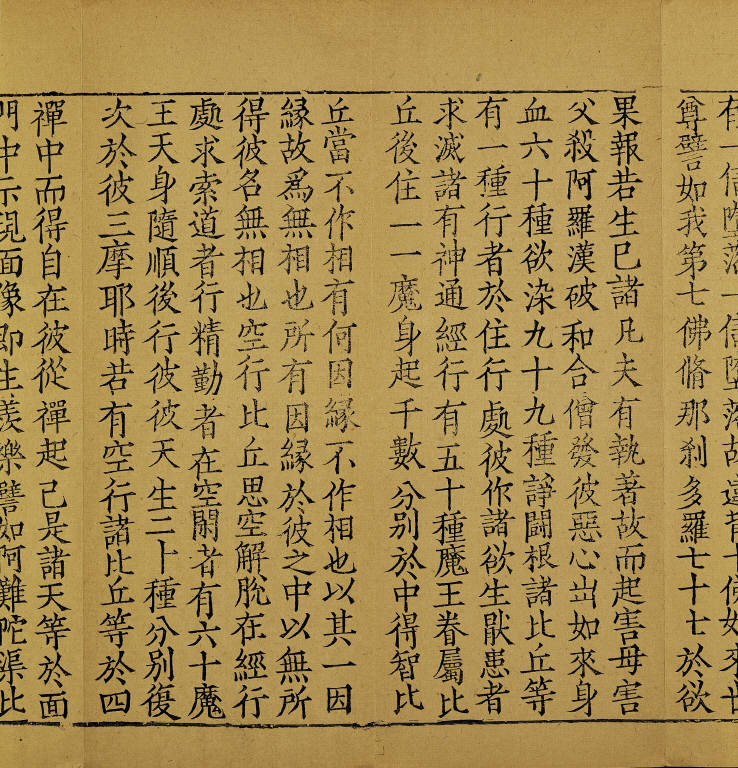 有一信墮落一信墮落故違背十佛如來世
尊譬如我第七佛脩那剎多羅七十七於欲
果報若生巳諸凡夫有執著故而起害母害
父殺阿羅漢破和合僧發彼惡心出如來身
血六十種欲染九十九種諍鬪根諸比丘等
有一種行者於住行處彼作諸欲生厭患者
求滅諸有神通經行有五十種魔王眷屬比
丘後住一一魔身起千數分別於中得智比
丘當不作相有何因緣不作相也以其一因
緣故爲無相也所有因緣於彼之中以無所
得彼名無相也空行比丘思空解脫在經行
處求索道者行精勤者在空閑者有六十魔
王天身隨順後行彼彼天生二十種分別復
次於彼三摩耶時若有空行諸比丘等於四
禪中而得自在彼從禪起己是諸天等於面
門中示現面像即生羨樂譬如阿難陀渠比